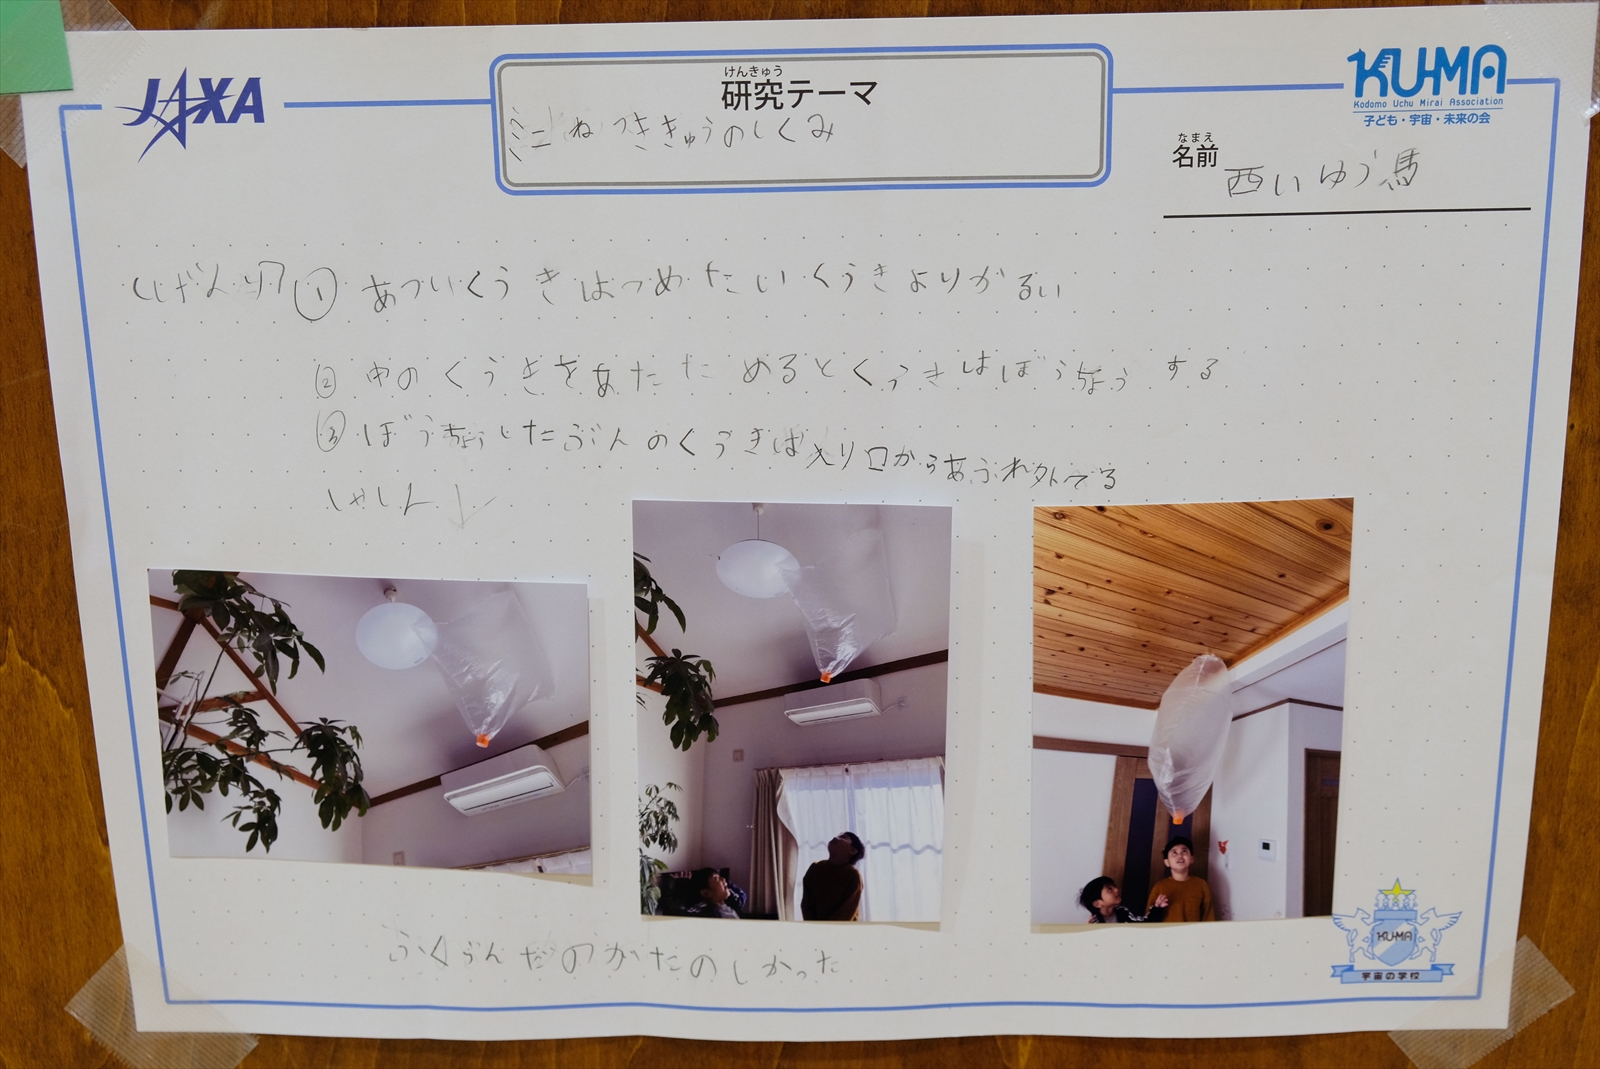 JAXA
けんきゅう
研究テーマ
ミニねつききゅうのしくみ
KU-MA
Kodomo Uchu Mirai Association
子ども・宇宙・未来の会
なまえ
名前
西いゆう馬
くげんり7 ① あついくうきはつめたいくうきよりかるい
② 中のくうきをあたためるとくうきはぼうちょうする
③ ぼうちょうしたぶんのくうきは入り口からあふれ外でる
しゃしん↓
KU-MA
宇宙の学校
ふくらんだのがたのしかった